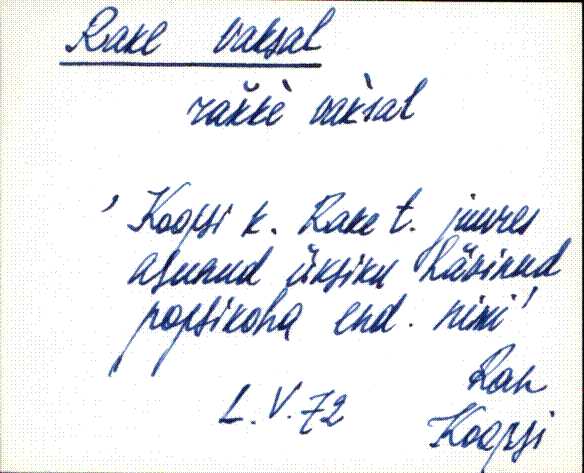 Rake vaksal
rakkè vak̀sal
' Koopsi k. Rake t. juures
asunud üksiku hävinud
popsikoha end. nimi'
L. V. 72 Ran
Koopsi